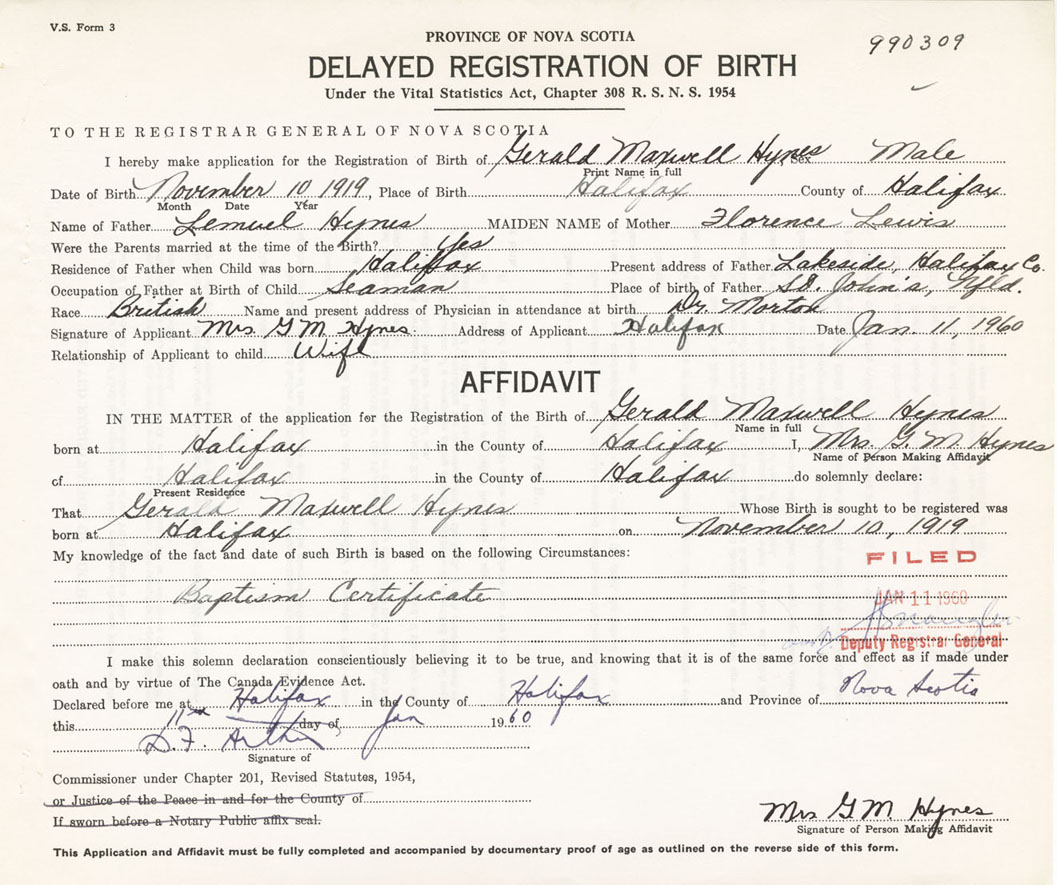 V.S. Form 3
PROVINCE OF NOVA SCOTIA
990309
DELAYED REGISTRATION OF BIRTH
Under the Vital Statistics Act, Chapter 308 R. S. N. S. 1954
TO THE REGISTRAR GENERAL OF NOVA SCOTIA
I hereby make application for the Registration of Birth of Gerald Maxwell Hynes Sex Male
Print Name in full
Date of Birth November 10 1919, Place of Birth Halifax County of Halifax
Month Date Year
Name of Father Lemuel Hynes MAIDEN NAME of Mother Florence Lewis
Were the Parents married at the time of the Birth? Yes
Residence of Father when Child was born Halifax Present address of Father Lakeside, Halifax Co.
Occupation of Father at Birth of Child Seaman Place of birth of Father St. John's, Nfld.
Race British Name and present address of Physician in attendance at birth Dr. Morton
Signature of Applicant Mrs G M Hynes Address of Applicant Halifax Date Jan. 11, 1960
Relationship of Applicant to child Wife
AFFIDAVIT
IN THE MATTER of the application for the Registration of the Birth of Gerald Maxwell Hynes
Name in full
born at Halifax in the County of Halifax I, Mrs. G. M. Hynes
Name of Person Making Affidavit
of Halifax in the County of Halifax do solemnly declare:
Present Residence
That Gerald Maxwell Hynes Whose Birth is sought to be registered was
born at Halifax on November 10, 1919
My knowledge of the fact and date of such Birth is based on the following Circumstances:
FILED
Baptism Certificate
JAN 11 1960
Deputy Registrar General
I make this solemn declaration conscientiously believing it to be true, and knowing that it is of the same force and effect as if made under
oath and by virtue of The Canada Evidence Act.
Declared before me at Halifax in the County of Halifax and Province of Nova Scotia
this 11th day of Jan 1960
D. F. Arthur
Signature of
Commissioner under Chapter 201, Revised Statutes, 1954,
or Justice of the Peace in and for the County of
If sworn before a Notary Public affix seal.
Mrs G M Hynes
Signature of Person Making Affidavit
This Application and Affidavit must be fully completed and accompanied by documentary proof of age as outlined on the reverse side of this form.